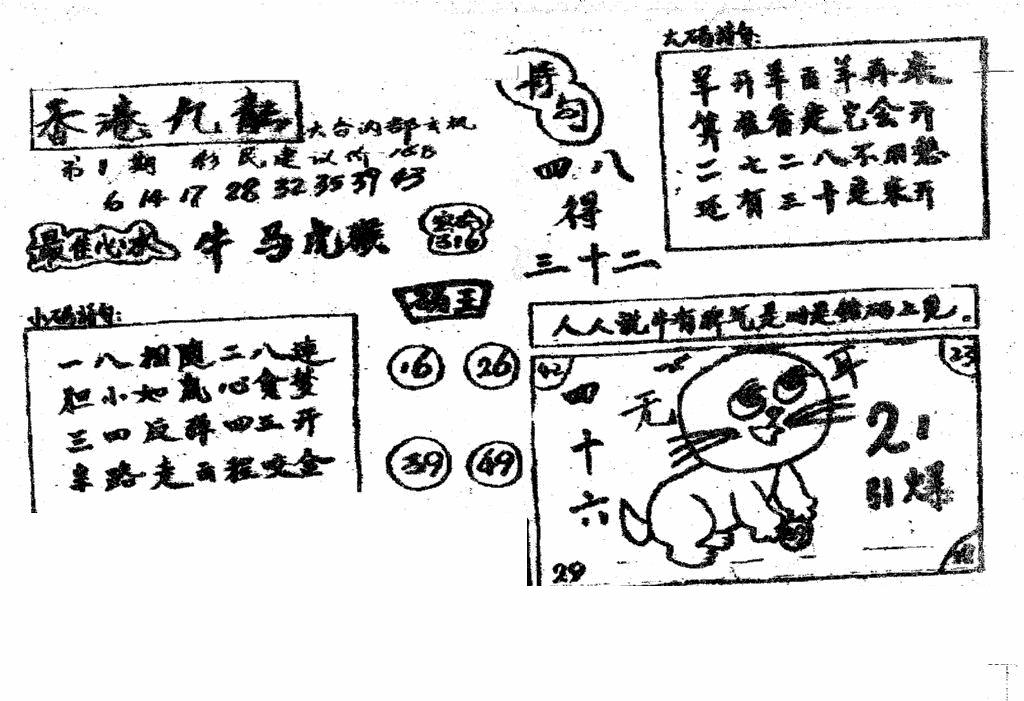 香港九龍
六合内部玄机
第1期 彩民建议价
6 14 17 28 32 35 39 43
最佳心水
牛马虎猴
316
小码诗句:
一八相随二八连
胆小如鼠心贪梦
三四反弹四五开
单路走西狂咬金
码王
16 26
39 49
诗句
四八
得
三十二
大码诗句:
羊开羊面羊再来
算准看走它会开
二七二八不用愁
还有三十是来开
人人说牛有脾气是对是错码上见。
42
23
四十六
无
耳
21
引爆
29